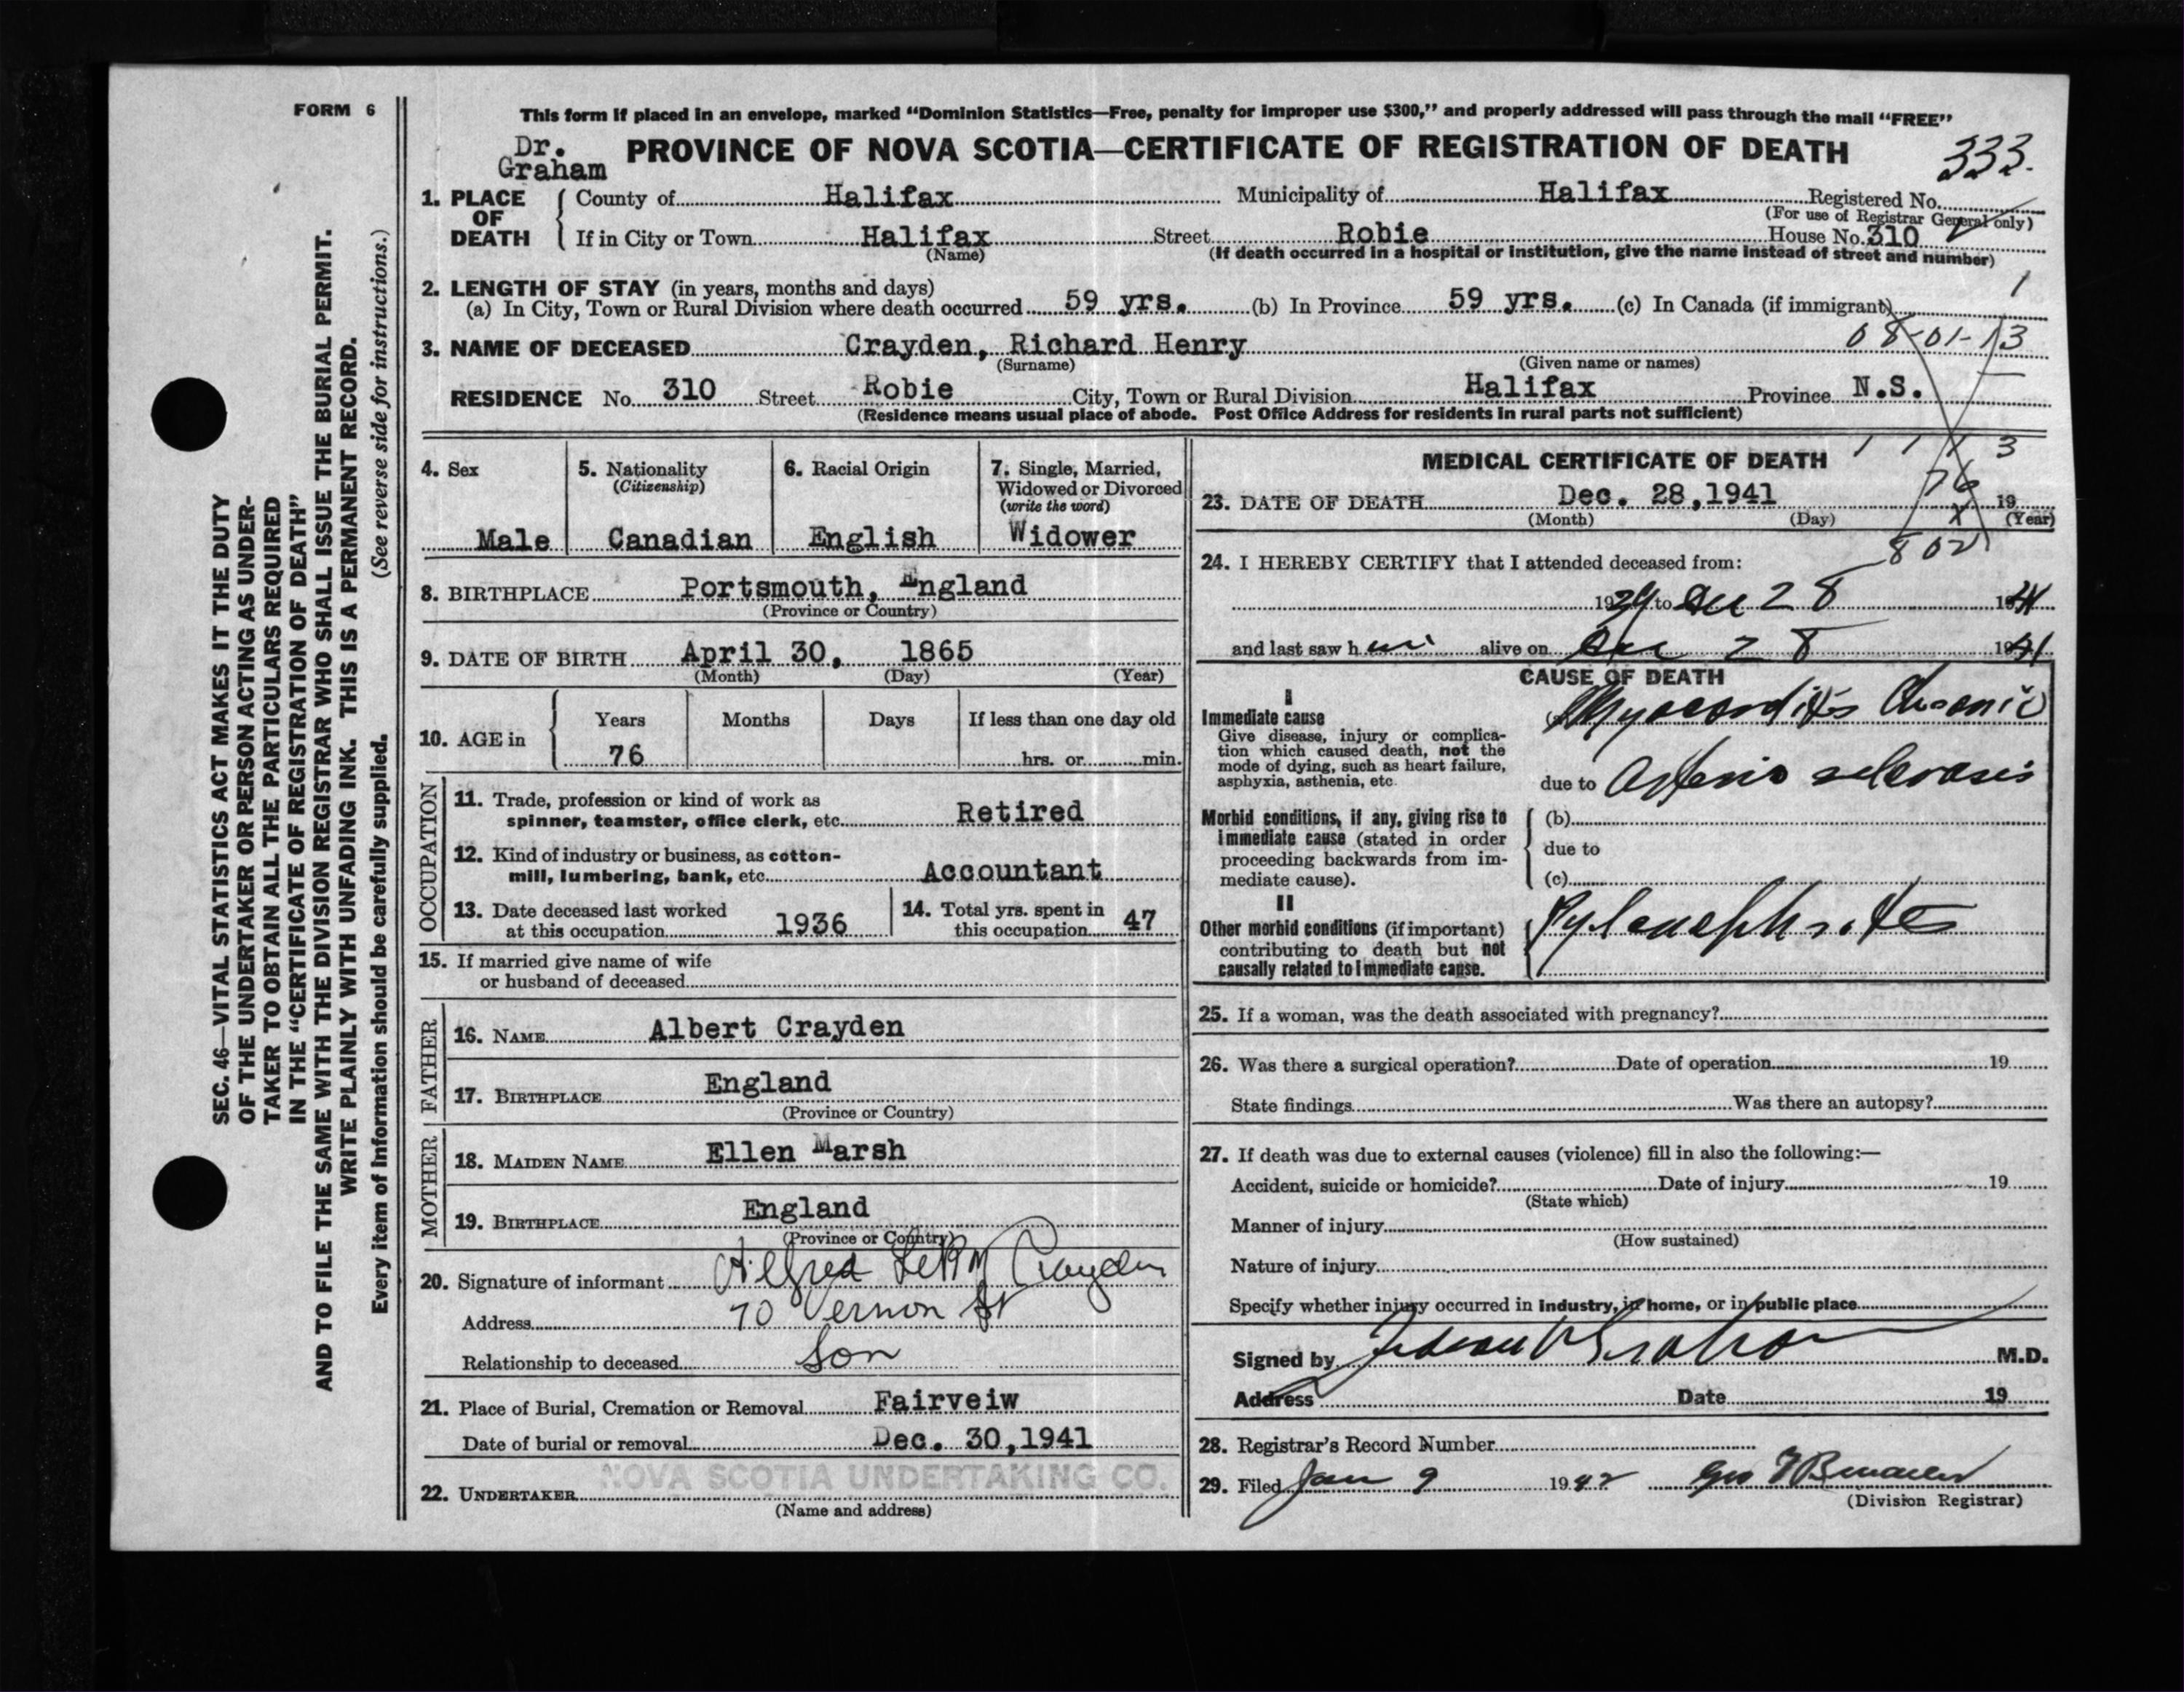 FORM 6
This form if placed in an envelope, marked “Dominion Statistics—Free, penalty for improper use $300,” and properly addressed will pass through the mail “FREE”
Dr. Graham
PROVINCE OF NOVA SCOTIA—CERTIFICATE OF REGISTRATION OF DEATH
333.
1. PLACE OF DEATH
County of Halifax Municipality of Halifax Registered No.
(For use of Registrar General only)
If in City or Town Halifax Street Robie House No. 310
(Name) (If death occurred in a hospital or institution, give the name instead of street and number)
2. LENGTH OF STAY (in years, months and days)
1
(a) In City, Town or Rural Division where death occurred 59 yrs. (b) In Province 59 yrs. (c) In Canada (if immigrant)
08-01-13
3. NAME OF DECEASED Crayden, Richard Henry
(Surname) (Given name or names)
RESIDENCE No. 310 Street Robie City, Town or Rural Division Halifax Province N.S.
(Residence means usual place of abode. Post Office Address for residents in rural parts not sufficient)
4. Sex
Male
5. Nationality
(Citizenship)
Canadian
6. Racial Origin
English
7. Single, Married,
Widowed or Divorced
(write the word)
Widower
8. BIRTHPLACE Portsmouth, England
(Province or Country)
9. DATE OF BIRTH April 30, 1865
(Month) (Day) (Year)
10. AGE in
Years Months Days If less than one day old
76 hrs. or min.
OCCUPATION
11. Trade, profession or kind of work as
spinner, teamster, office clerk, etc. Retired
12. Kind of industry or business, as cotton-
mill, lumbering, bank, etc. Accountant
13. Date deceased last worked
at this occupation 1936
14. Total yrs. spent in
this occupation 47
15. If married give name of wife
or husband of deceased
FATHER
16. NAME Albert Crayden
17. BIRTHPLACE England
(Province or Country)
MOTHER
18. MAIDEN NAME Ellen Marsh
19. BIRTHPLACE England
(Province or Country)
20. Signature of informant Alfred LeRoy Crayden
Address 70 Vernon St
Relationship to deceased Son
21. Place of Burial, Cremation or Removal Fairveiw
Date of burial or removal Dec. 30, 1941
NOVA SCOTIA UNDERTAKING CO.
22. UNDERTAKER
(Name and address)
MEDICAL CERTIFICATE OF DEATH
1 1 1 3
76
23. DATE OF DEATH Dec. 28, 1941 19
(Month) (Day) X (Year)
802
24. I HEREBY CERTIFY that I attended deceased from:
1939 to Dec 28 1941
and last saw him alive on Dec 28 1941
CAUSE OF DEATH
I
Immediate cause
Give disease, injury or complica-
tion which caused death, not the
mode of dying, such as heart failure,
asphyxia, asthenia, etc.
Myocarditis Chronic
due to Arterio sclerosis
Morbid conditions, if any, giving rise to
immediate cause (stated in order
proceeding backwards from im-
mediate cause).
(b)
due to
(c)
II
Other morbid conditions (if important)
contributing to death but not
causally related to immediate cause.
Pylonephritis
25. If a woman, was the death associated with pregnancy?
26. Was there a surgical operation? Date of operation 19
State findings Was there an autopsy?
27. If death was due to external causes (violence) fill in also the following:—
Accident, suicide or homicide? Date of injury 19
(State which)
Manner of injury
(How sustained)
Nature of injury
Specify whether injury occurred in industry, in home, or in public place
Signed by Graham M.D.
Address Date 19
28. Registrar's Record Number
29. Filed Jan 9 1942 Geo
(Division Registrar)
SEC. 46—VITAL STATISTICS ACT MAKES IT THE DUTY
OF THE UNDERTAKER OR PERSON ACTING AS UNDER-
TAKER TO OBTAIN ALL THE PARTICULARS REQUIRED
IN THE “CERTIFICATE OF REGISTRATION OF DEATH”
AND TO FILE THE SAME WITH THE DIVISION REGISTRAR WHO SHALL ISSUE THE BURIAL PERMIT.
WRITE PLAINLY WITH UNFADING INK. THIS IS A PERMANENT RECORD.
Every item of information should be carefully supplied. (See reverse side for instructions.)